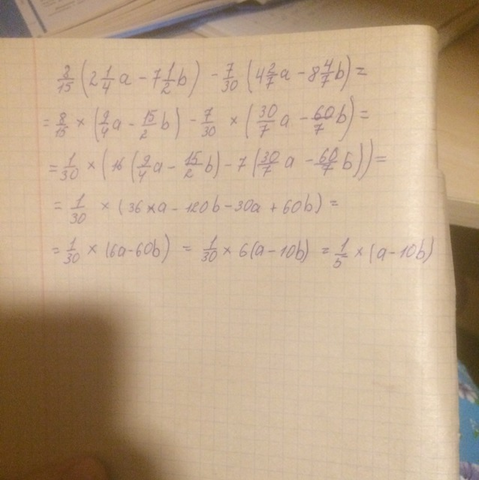 2/15 (2 1/4 a - 7 1/2 b) - 7/30 (4 2/7 a - 8 4/7 b) =
= 8/15 × (9/4 a - 15/2 b) - 7/30 × (30/7 a - 60/7 b) =
= 1/30 × (16 (9/4 a - 15/2 b) - 7 (30/7 a - 60/7 b)) =
= 1/30 × (36×a - 120b - 30a + 60b) =
= 1/30 × (6a - 60b) = 1/30 × 6(a - 10b) = 1/5 × (a - 10b)